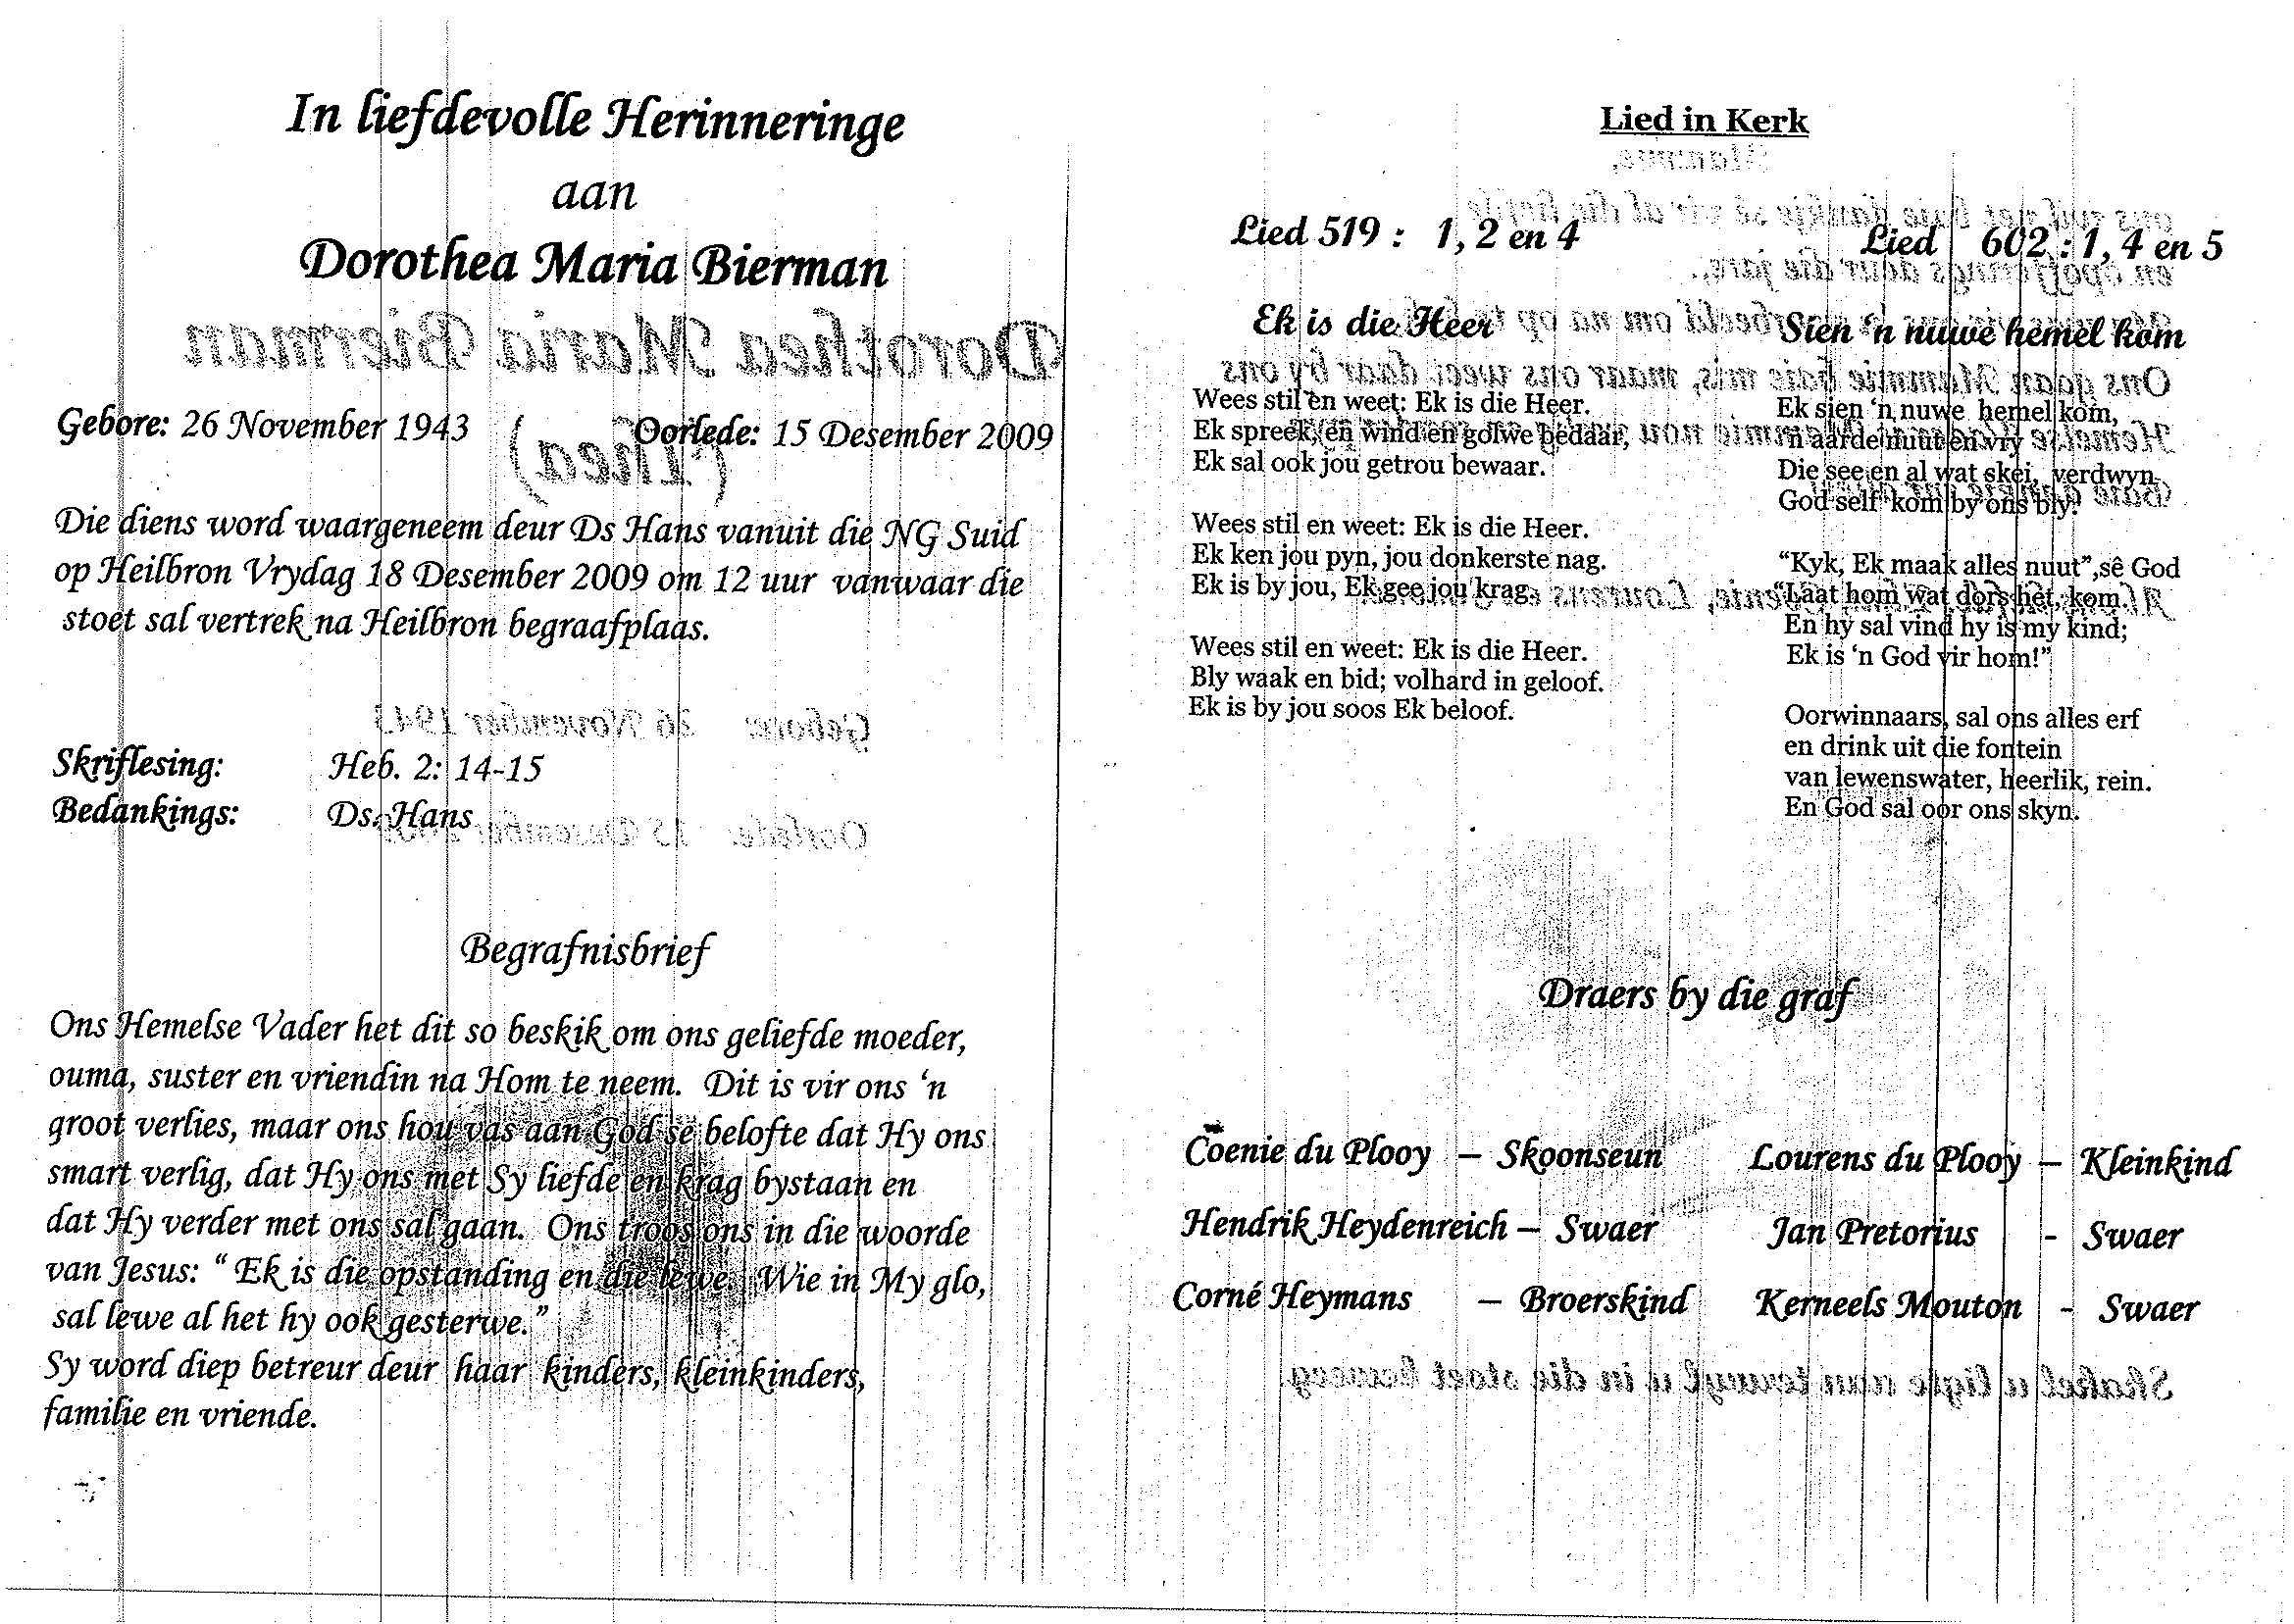 In liefdevolle Herinneringe
aan
Dorothea Maria Bierman
Dorothea Maria Bierman
(Thea)
Gebore: 26 November 1943 Oorlede: 15 Desember 2009
Die diens word waargeneem deur Ds Hans vanuit die NG Suid
op Heilbron Vrydag 18 Desember 2009 om 12 uur vanwaar die
stoet sal vertrek na Heilbron begraafplaas.
Gebore: 26 November 1943
Skriflesing: Heb. 2: 14-15
Bedankings: Ds. Hans
Oorlede: 15 Desember
Begrafnisbrief
Ons Hemelse Vader het dit so beskik om ons geliefde moeder,
ouma, suster en vriendin na Hom te neem. Dit is vir ons ‘n
groot verlies, maar ons hou vas aan God se belofte dat Hy ons
smart verlig, dat Hy ons met Sy liefde en krag bystaan en
dat Hy verder met ons sal gaan. Ons troos ons in die woorde
van Jesus: “ Ek is die opstanding en die lewe. Wie in My glo,
sal lewe al het hy ook gesterwe.”
Sy word diep betreur deur haar kinders, kleinkinders,
familie en vriende.
Lied in Kerk
Mamma,
ons wil net baie dankie sê vir al die liefde
en opofferings deur die jare,
Lied 519 : 1, 2 en 4
Ek is die Heer
Wees stil en weet: Ek is die Heer.
Ek spreek, en wind en golwe bedaar,
Ek sal ook jou getrou bewaar.
Wees stil en weet: Ek is die Heer.
Ek ken jou pyn, jou donkerste nag.
Ek is by jou, Ek gee jou krag.
Wees stil en weet: Ek is die Heer.
Bly waak en bid; volhard in geloof.
Ek is by jou soos Ek beloof.
Lied 602 : 1, 4 en 5
Sien ‘n nuwe hemel kom
Ek sien ‘n nuwe hemel kom,
‘n aarde nuut en vry
Die see en al wat skei, verdwyn.
God self kom by ons bly.
“Kyk, Ek maak alles nuut”,sê God
“Laat hom wat dors het, kom.
En hy sal vind hy is my kind;
Ek is ‘n God vir hom!”
Oorwinnaars, sal ons alles erf
en drink uit die fontein
van lewenswater, heerlik, rein.
En God sal oor ons skyn.
Ons gaan Mammie baie mis, maar ons weet daar by ons
Draers by die graf
Coenie du Plooy – Skoonseun Lourens du Plooy – Kleinkind
Hendrik Heydenreich – Swaer Jan Pretorius - Swaer
Corné Heymans – Broerskind Kerneels Mouton - Swaer
Skakel u ligte aan terwyl u in die stoet beweeg